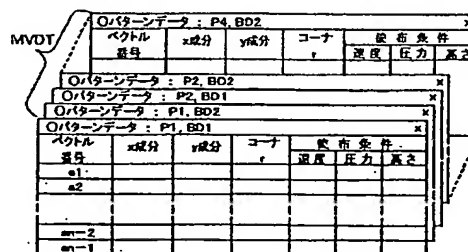 MVDT
○パターンデータ : P4, BD2 ×
ベクトル番号 x成分 y成分 コーナr 塗布条件
速度 圧力 高さ
○パターンデータ : P2, BD2 ×
○パターンデータ : P2, BD1 ×
○パターンデータ : P1, BD2 ×
○パターンデータ : P1, BD1 ×
ベクトル番号 x成分 y成分 コーナr 塗布条件
速度 圧力 高さ
a1
a2
an-2
an-1